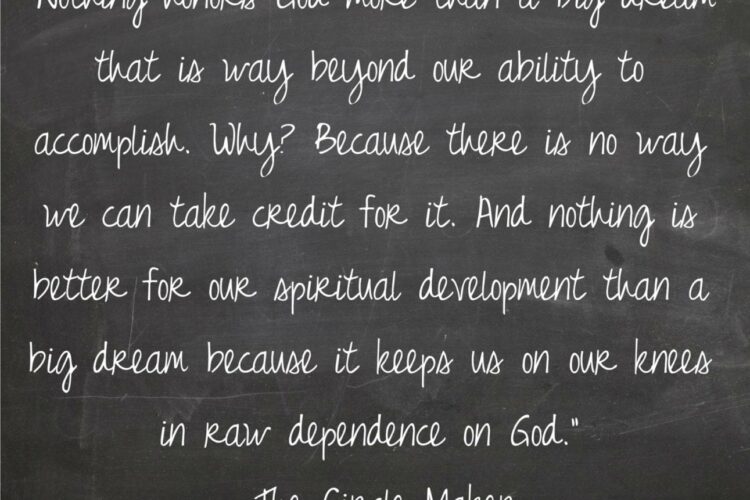 "Nothing honors God more than a big dream
that is way beyond our ability to
accomplish. Why? Because there is no way
we can take credit for it. And nothing is
better for our spiritual development than a
big dream because it keeps us on our knees
in raw dependence on God."
The Circle Maker